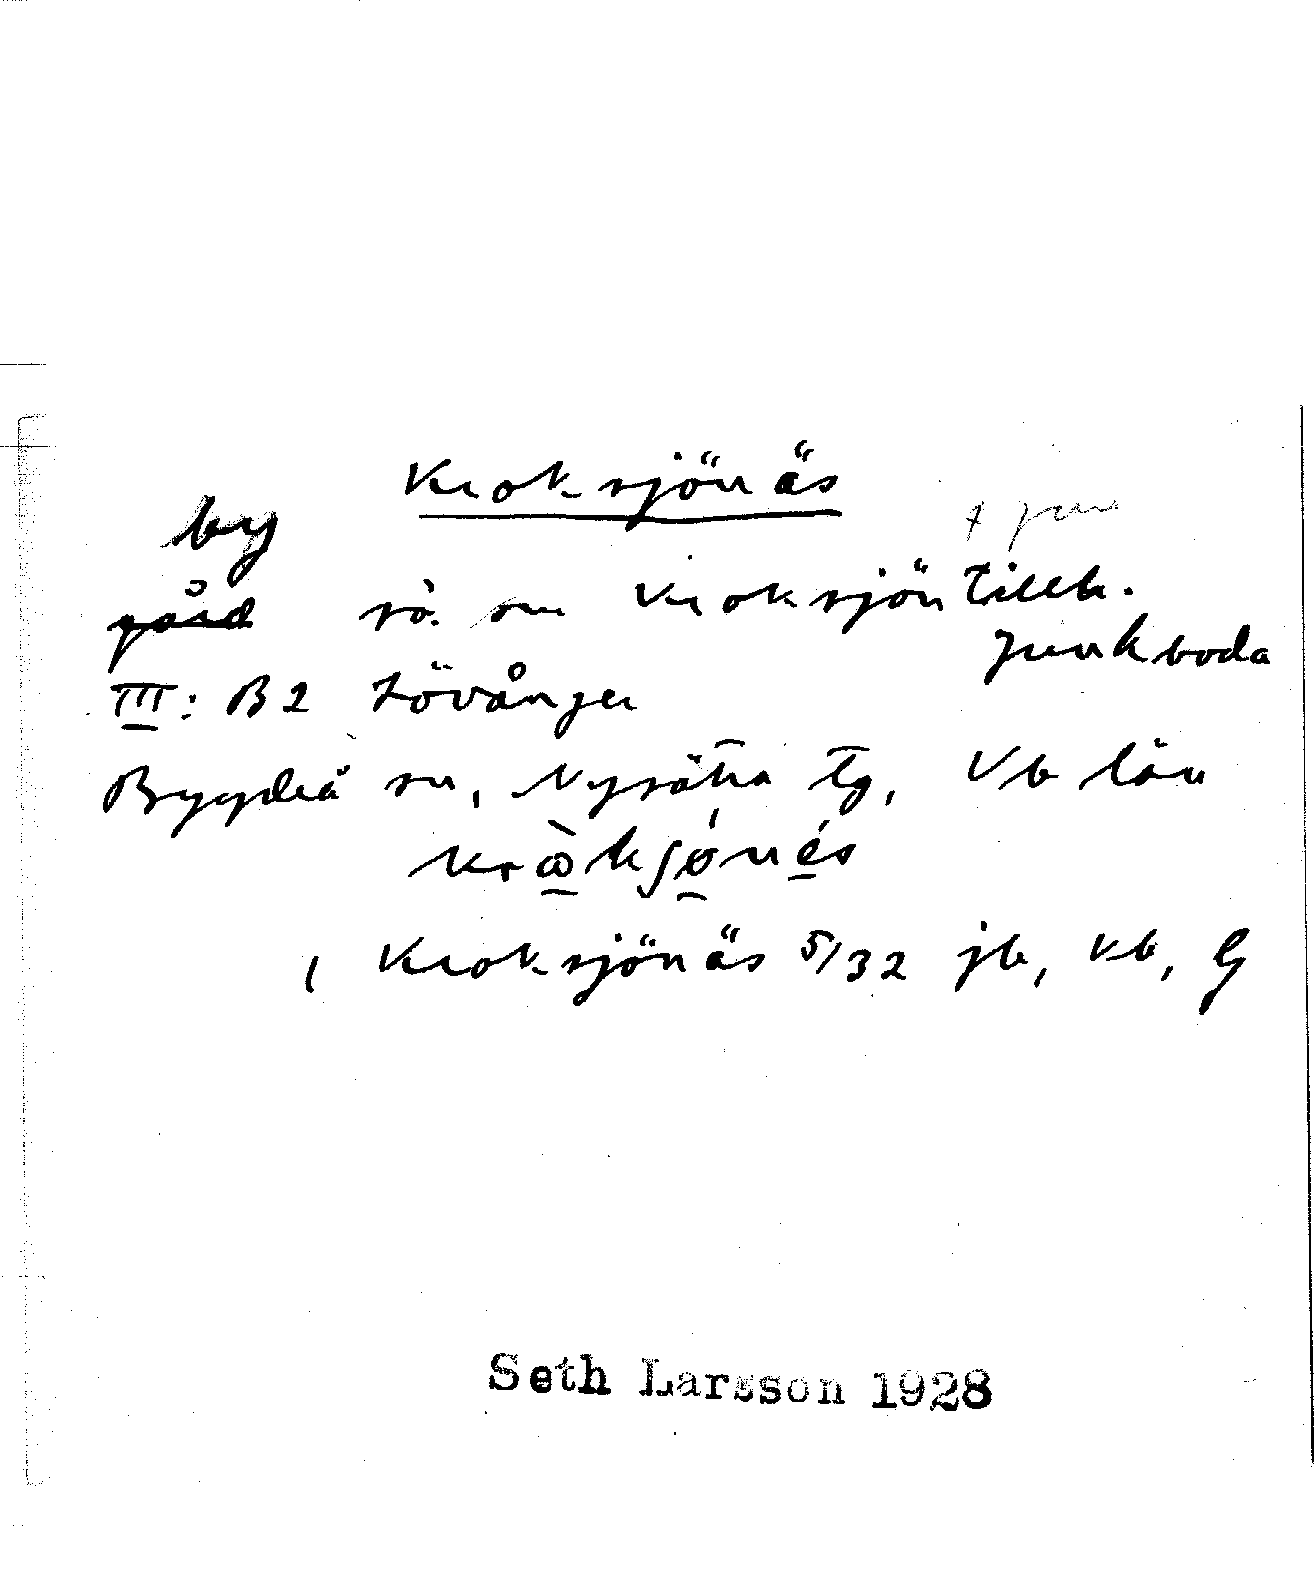 Kroksjönäs
by
gård sö. om Kroksjön tillh.
Junkboda
III: B2 Lövånger
Bygdeå sn, Nysätra tg, Vb län
Kroksjönäs 5/32 jb, kb, G
Seth Larsson 1928